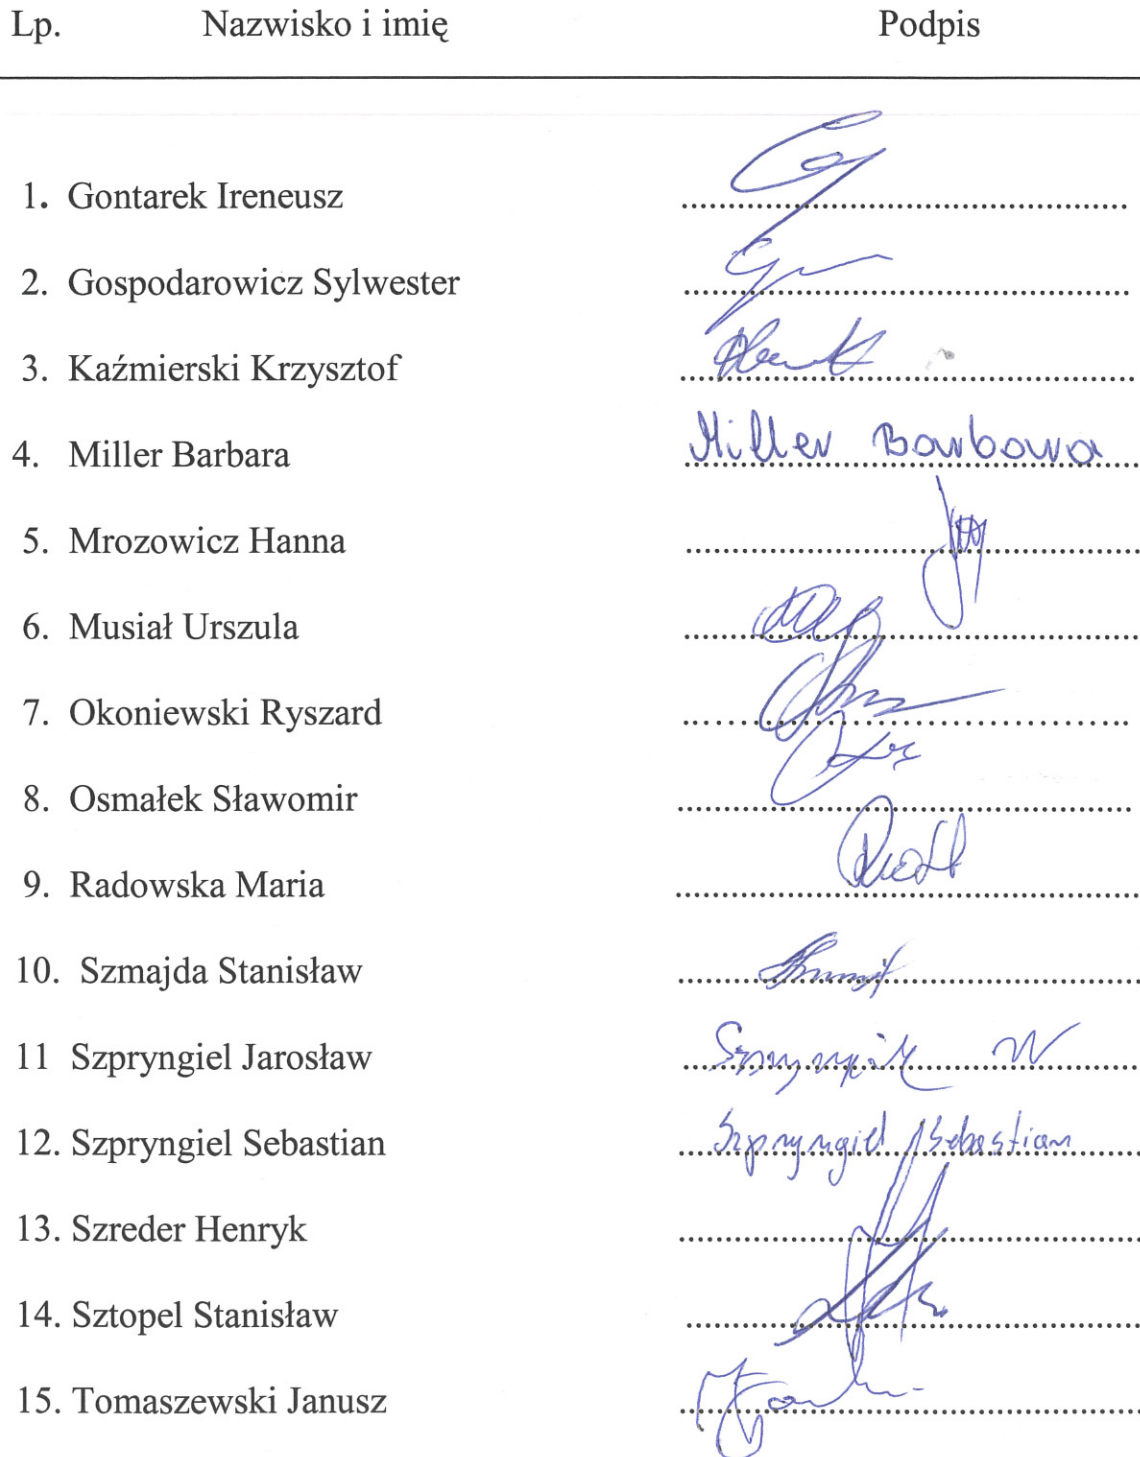 Lp. Nazwisko i imię Podpis
1. Gontarek Ireneusz
2. Gospodarowicz Sylwester
3. Kaźmierski Krzysztof
4. Miller Barbara Miller Barbara
5. Mrozowicz Hanna
6. Musiał Urszula
7. Okoniewski Ryszard
8. Osmałek Sławomir
9. Radowska Maria
10. Szmajda Stanisław
11 Szpryngiel Jarosław
12. Szpryngiel Sebastian Szpryngiel Sebastian
13. Szreder Henryk
14. Sztopel Stanisław
15. Tomaszewski Janusz